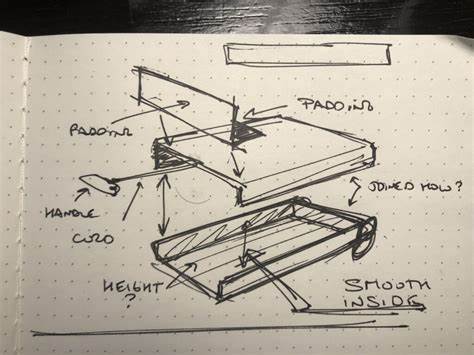 PADDING
PADDING
HANDLE
CORD
JOINED HOW?
HEIGHT
?
SMOOTH
INSIDE